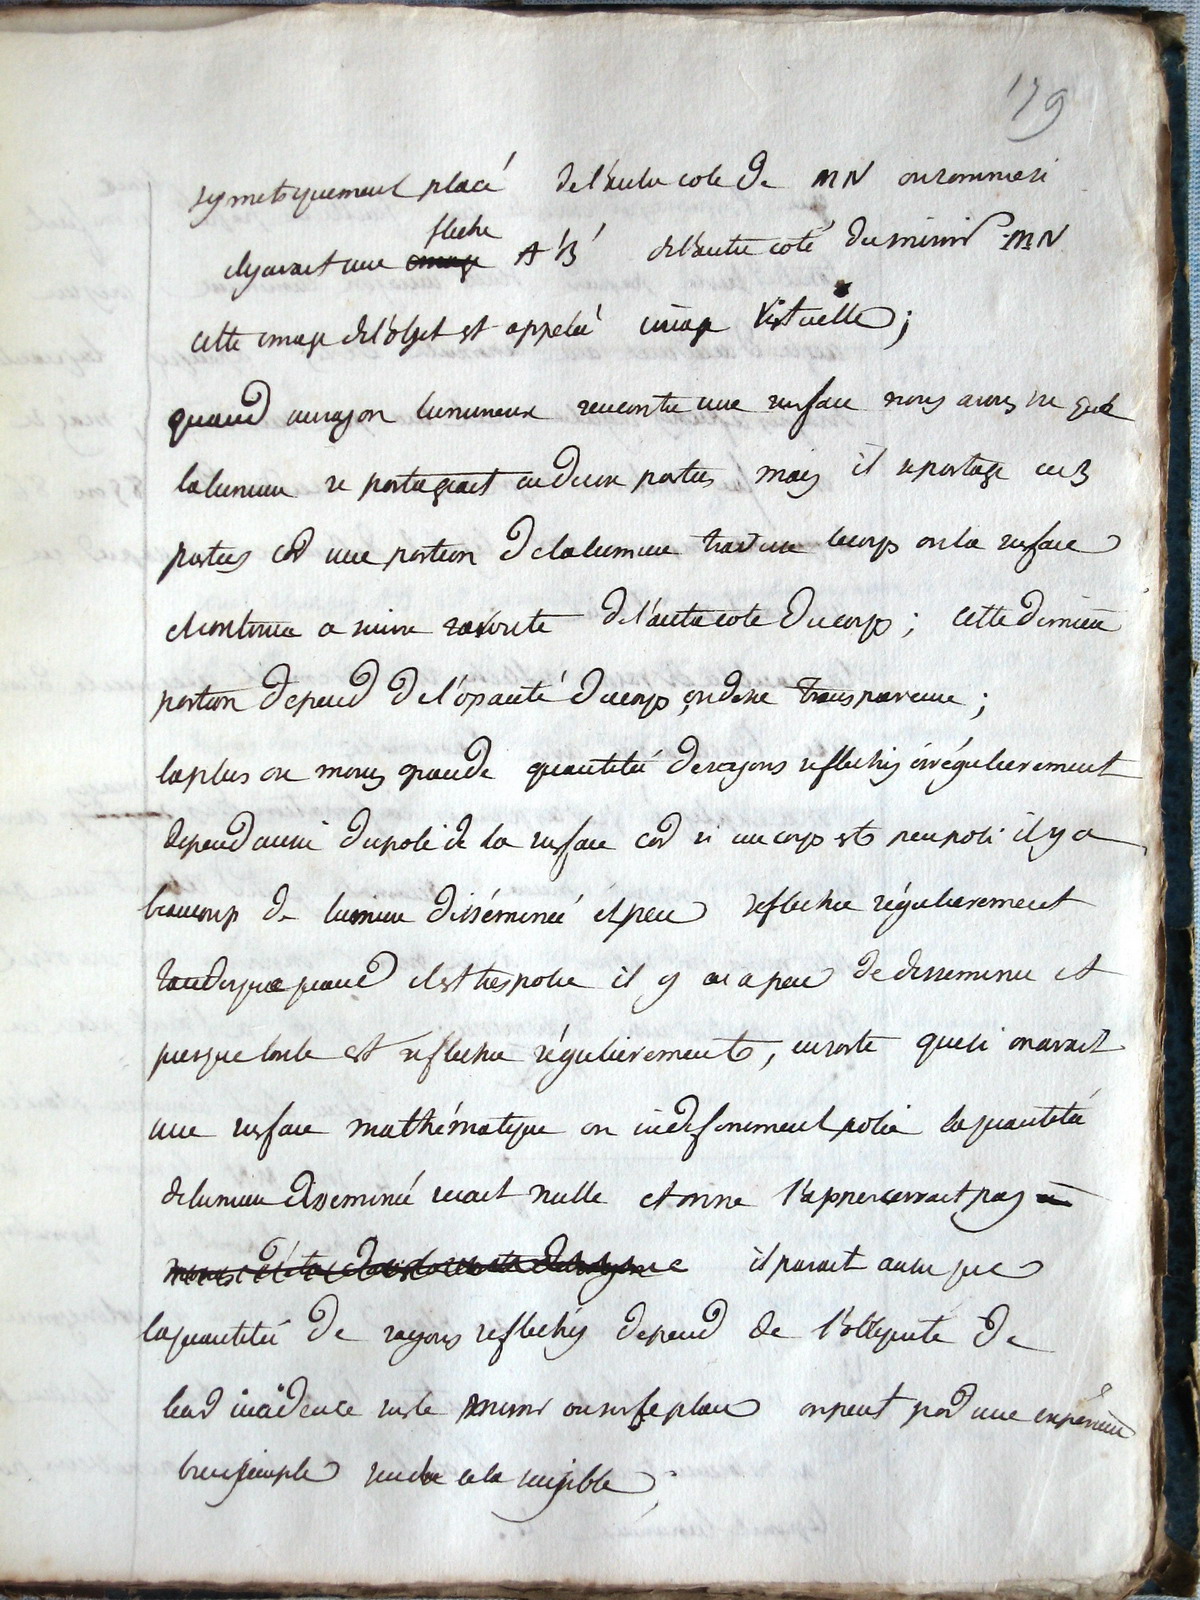 179
symetriquement placé de l'autre cote de MN ou comme si
il y avait une fleche A'B' de l'autre coté du miroir MN
cette image de l'objet est appelée image virtuelle ;
quand un rayon lumineux rencontre une surface nous avons vu que
la lumiere se partageait en deux parties mais il se partage en 3
parties car une portion de la lumiere traverse le corps ou la surface
et continue a suivre sa route de l'autre cote du corps ; cette derniere
portion depend de l'opacité du corps, ou de sa transparence ;
la plus ou moins grande quantité de rayons reflechis irrégulierement
depend aussi du poli de la surface car si un corps est peu poli il y a
beaucoup de lumiere disséminée et peu reflechie régulierement
tandis que quand il est tres polie il y en a peu de disseminee et
presque toute est reflechie régulierement, en sorte que si on avait
une surface mathématique ou indefiniment polie la quantité
de lumiere disseminée serait nulle et on ne l'appercevrait pas
il parait aussi que
la quantité de rayons reflechis depend de l'obliquité de
leur incidence sur le miroir ou surface plane on peut par une experience
bien simple rendre cela sensible ;